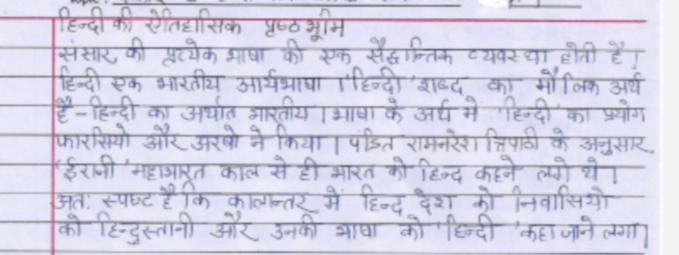 हिन्दी की ऐतिहासिक पृष्ठभूमि
संसार की प्रत्येक भाषा की एक सैद्धान्तिक व्यवस्था होती है।
हिन्दी एक भारतीय आर्यभाषा। 'हिन्दी' शब्द का मौलिक अर्थ
है - हिन्दी का अर्थात भारतीय। भाषा के अर्थ मे 'हिन्दी' का प्रयोग
फारसियो और अरबो ने किया। पंडित रामनरेश त्रिपाठी के अनुसार
'ईरानी' महाभारत काल से ही भारत को हिन्द कहने लगे थे।
अत: स्पष्ट है कि कालान्तर में हिन्द देश को निवासियो
को हिन्दुस्तानी और उनकी भाषा को 'हिन्दी' कहा जाने लगा।